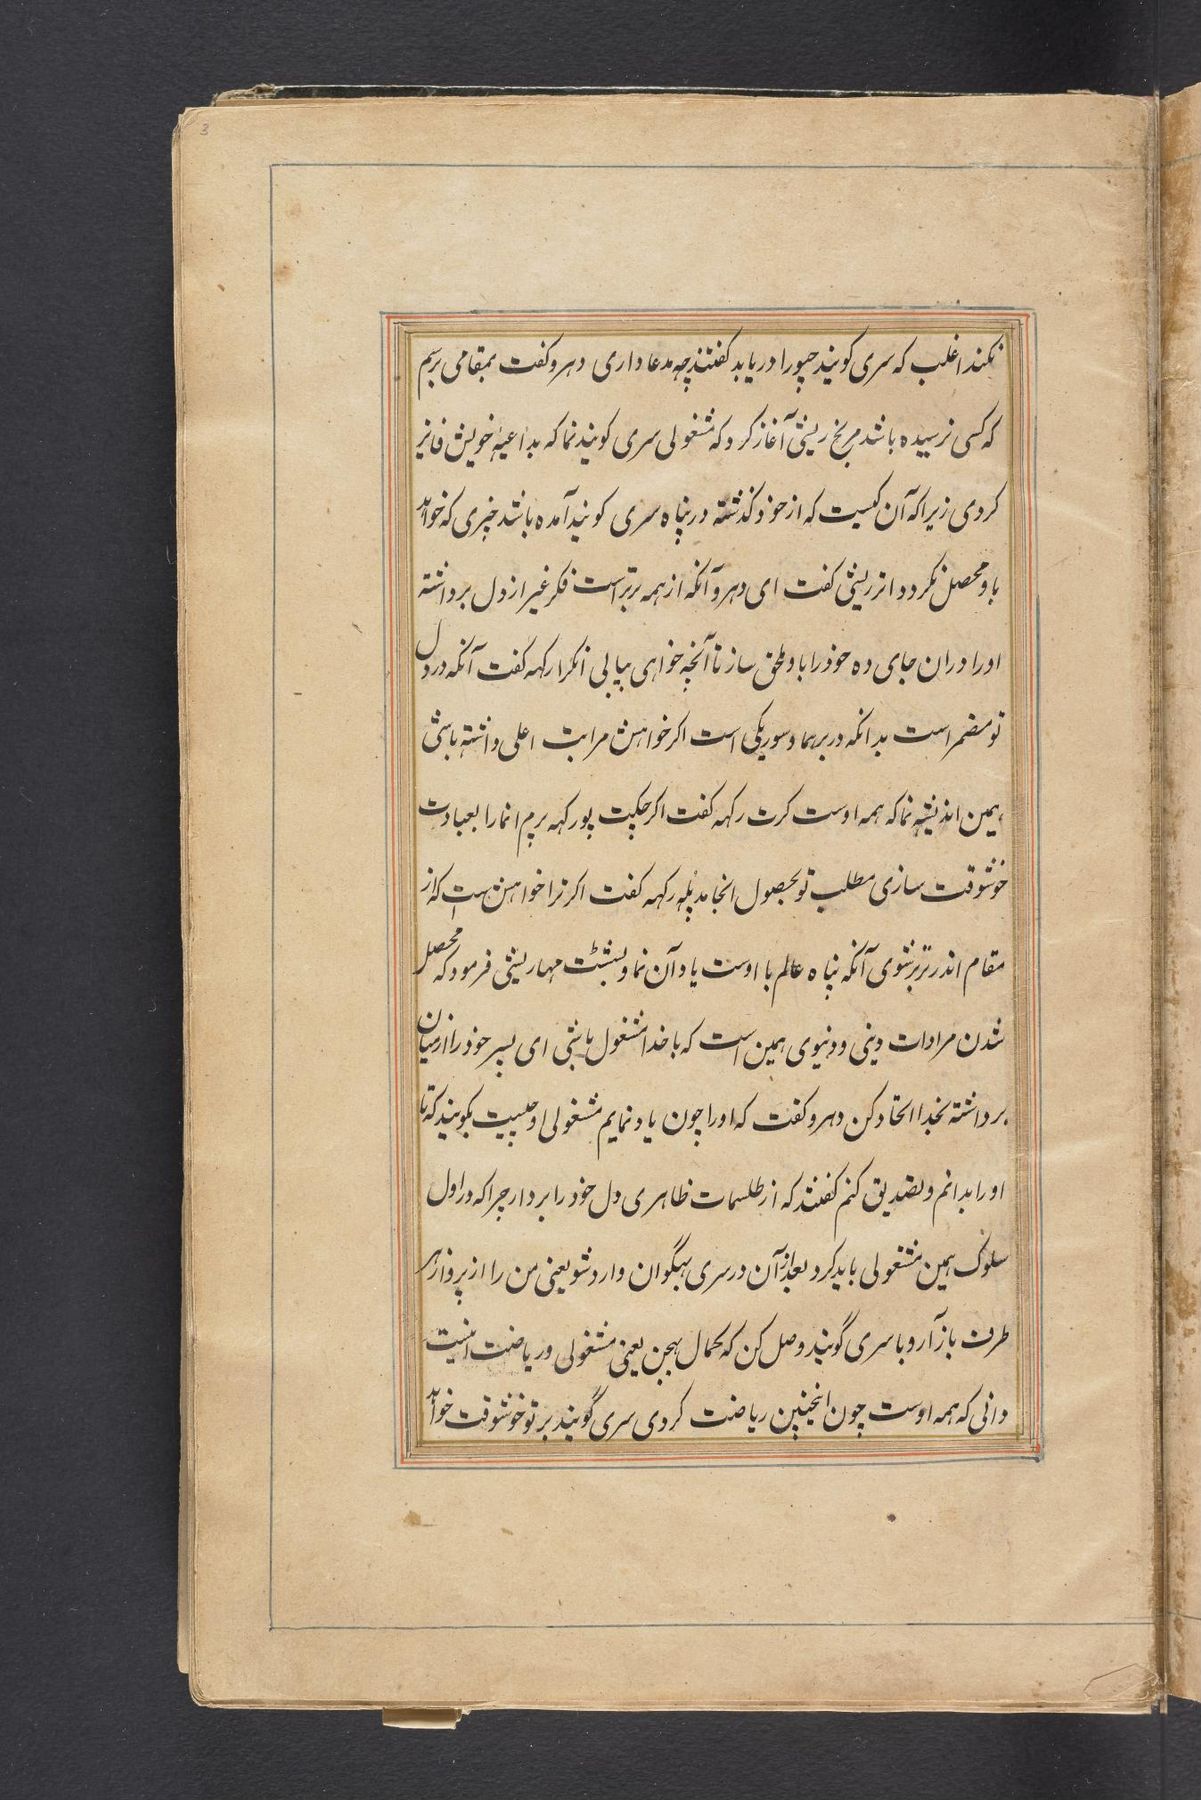 3
نکند اغلب که سری کوبند جیورا دریابد کفتند چه مدعا داری دهرو کفت بمقامی برسم
که کسی نرسیده باشد مریخ ریشی آغاز کرد که مشغولی سری کوبند نما که بداعیهٔ خویش فایز
کردی زیرا که آن کیست که از خود کذشته در پناه سری کوبند آمده باشد چیزی که خواهد
باو محصل نکردد اتر ریشی کفت ای دهرو آنکه از همه برتر است فکر غیر از دل برداشته
او را دران جای ده خود را باو ملحق ساز تا آنچه خواهی بیابی انکرا رکهه کفت آنکه در دل
تو مضمر است بدانکه در برهما و سوریکی است اکر خواهش مراتب اعلی داشته باشی
همین اندیشه نما که همه اوست کرت رکهه کفت اکر جکپت پورکهه برم اتما را بعبادت
خوشوقت سازی مطلب تو بحصول انجامد پله رکهه کفت اکر ترا خواهش هست که از
مقام اندر برتر شوی آنکه پناه عالم با اوست یاد آن نما و بسشت مهاریشی فرمود که محصل
شدن مرادات دینی و دنیوی همین است که با خدا مشغول باشی ای پسر خود را از میان
برداشته بخدا اتحاد کن دهرو کفت که او را چون یاد نمایم مشغولی او چیست بکویند که تا
او را بدانم و تصدیق کنم کفتند که از طلسمات ظاهری دل خود را بردار چرا که در اول
سلوک همین مشغولی باید کرد بعد از آن در سری بهکوان وارد شو یعنی من را از پرواز هر
طرف باز آر و با سری کوبند وصل کن که کمال بهجن یعنی مشغولی و ریاضت اینست
دانی که همه اوست چون اینچنین ریاضت کردی سری کوبند بر تو خوشوقت خواهد